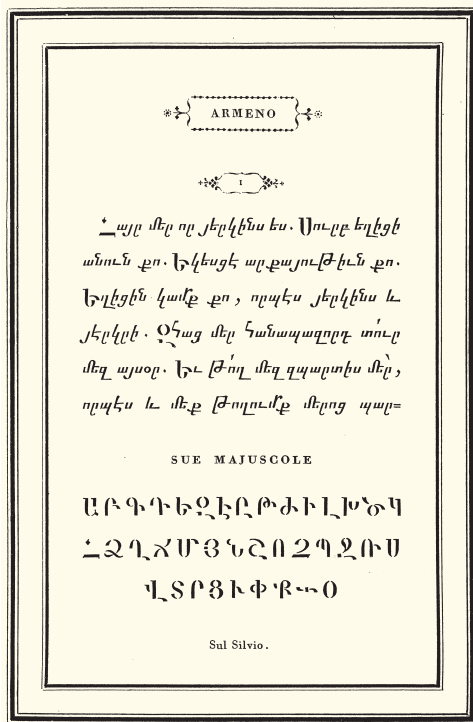 ARMENO
I
Հայր մեր որ յերկինս ես. Սուրբ եղիցի
անուն քո. Եկեսցէ արքայութիւն քո.
Եղիցին կամք քո, որպէս յերկինս և
յէրկրի. Զհաց մեր հանապազորդ տո՛ւր
մեզ այսօր. Եւ թո՛ղ մեզ զպարտիս մե՛ր,
որպէս և մեք թողումք մերոց պար=
SUE MAJUSCOLE
ԱԲԳԴԵԶԷԸԹԺԻԼԽԾԿ
ՀՁՂՃՄՅՆՇՈՉՊՋՌՍ
ՎՏՐՑՒՓՔՕ
Sul Silvio.